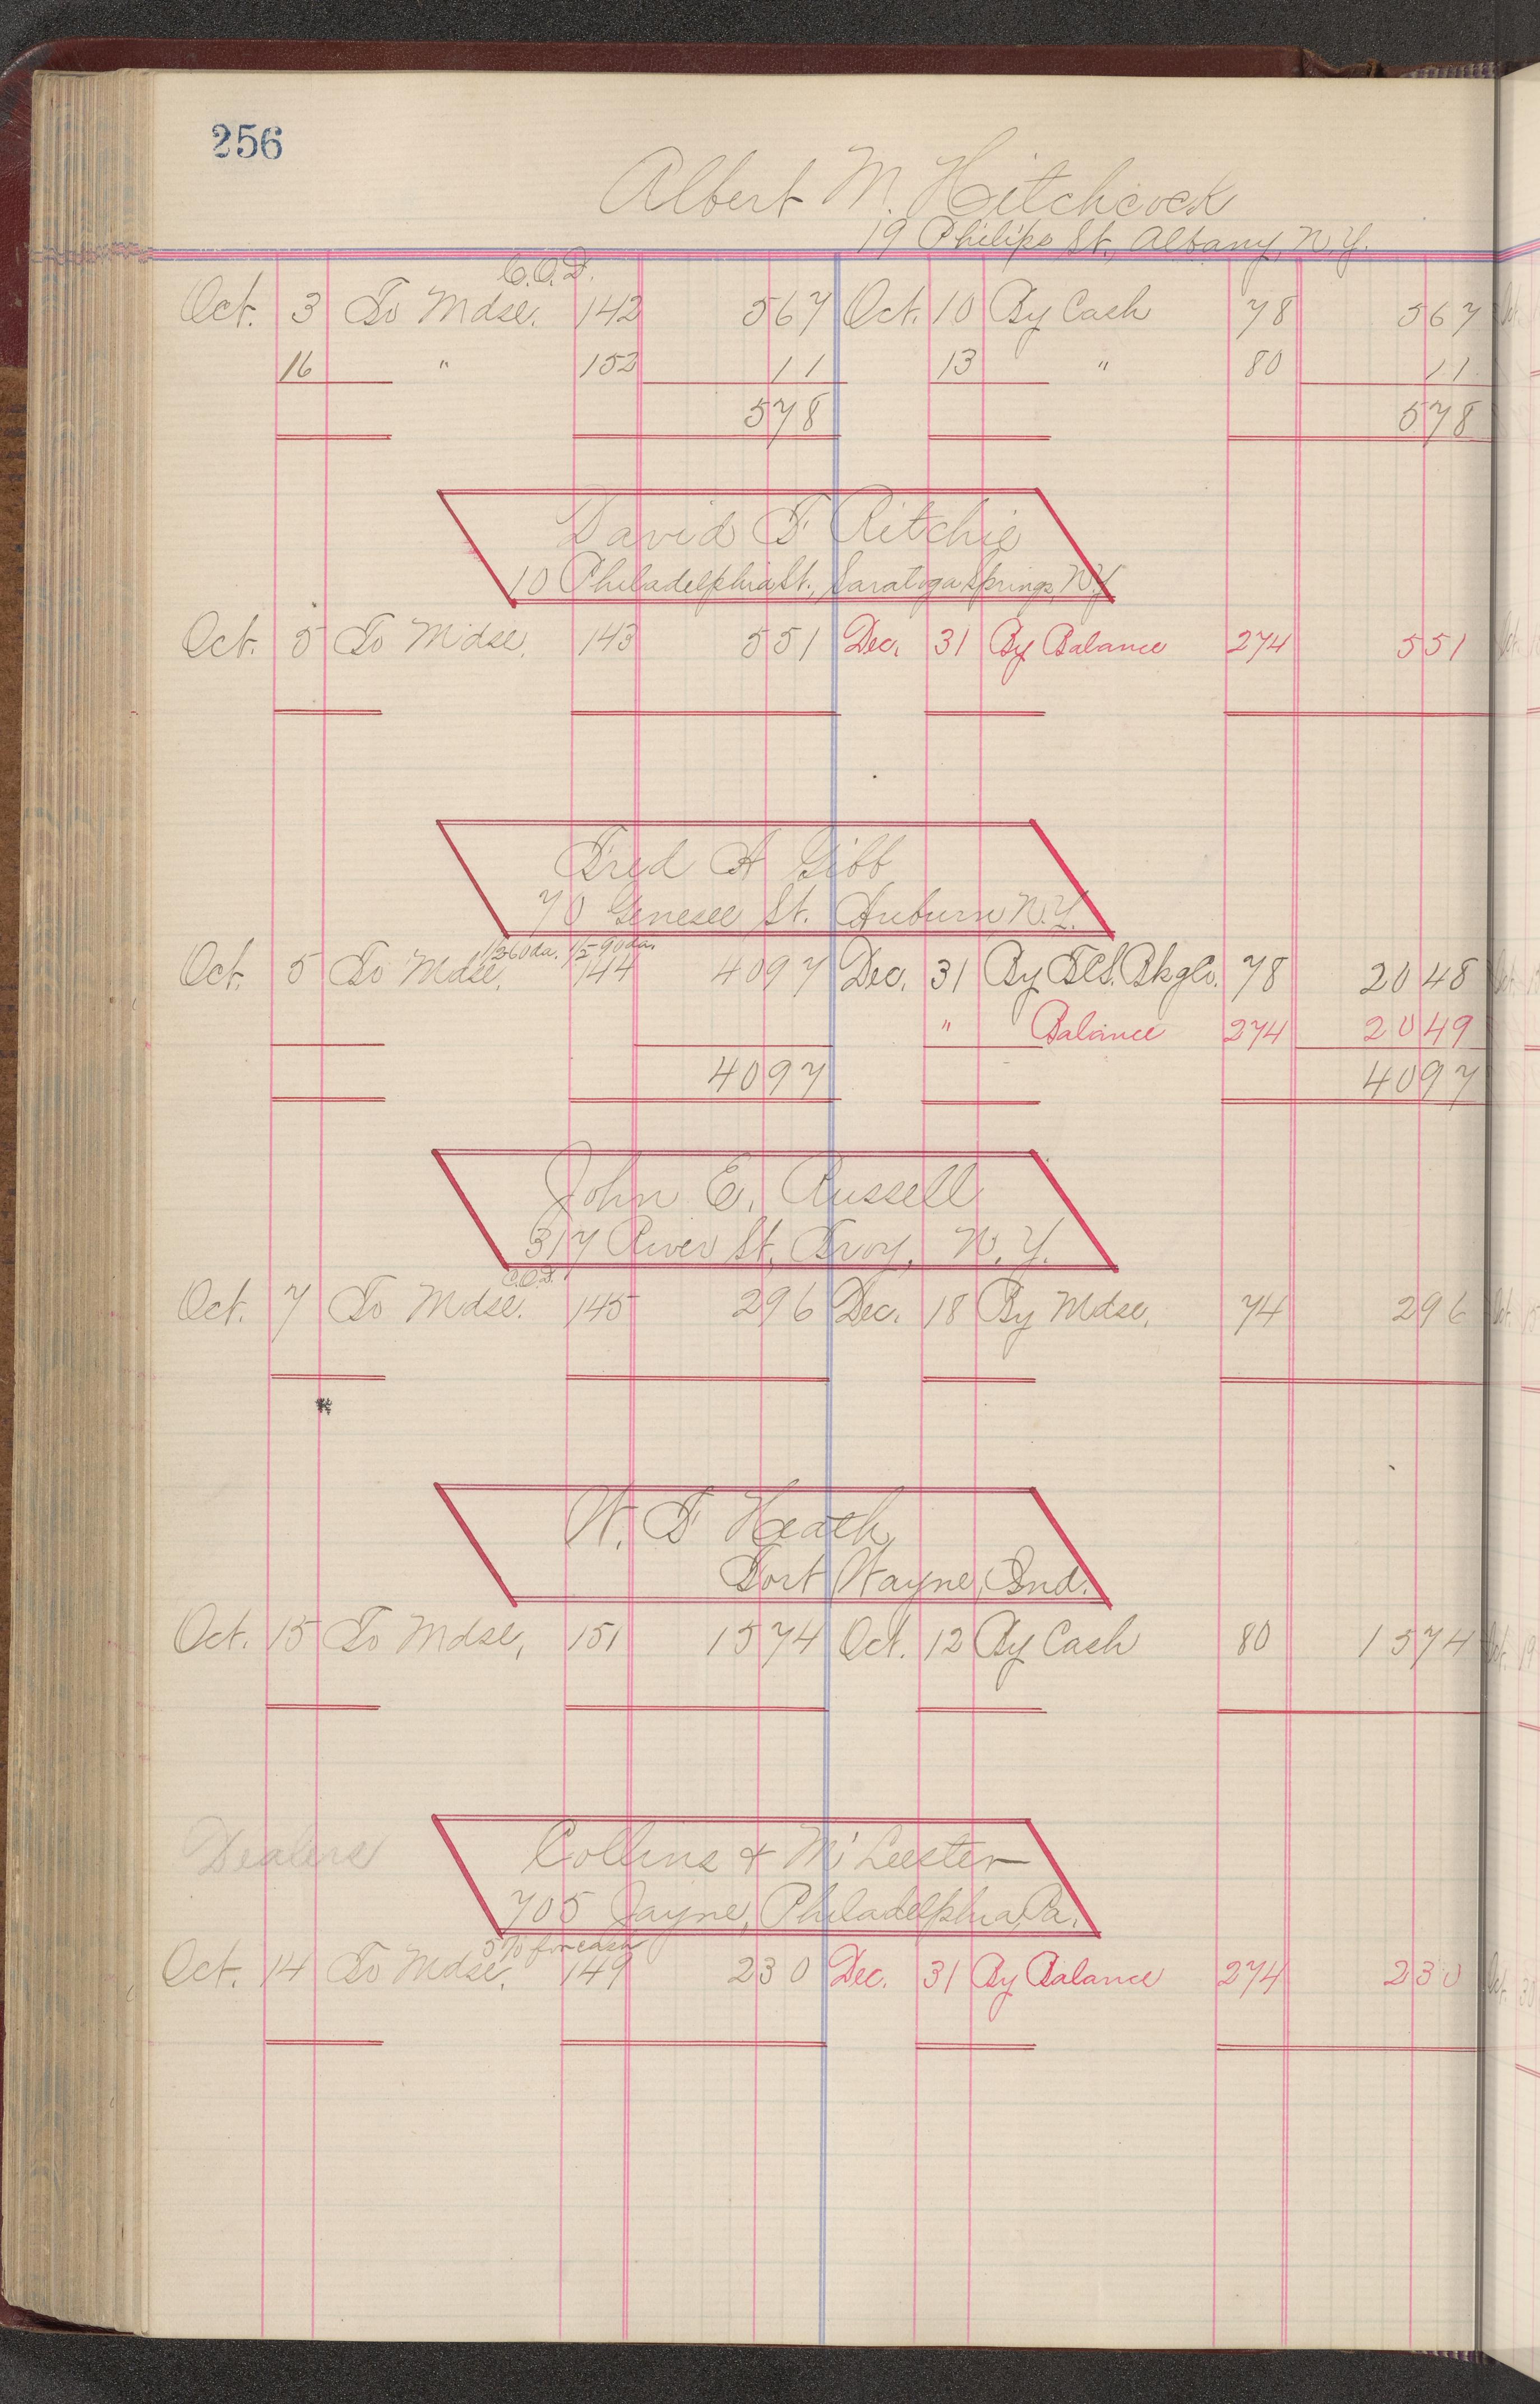 256
Albert M. Hitchcock
19 Philips St., Albany, N.Y.
C.O.D.
Oct. 3 To Mdse. 142 5 67 Oct. 10 By Cash 78 5 67
16 " 152 11 13 " 80 11
5 78 5 78
David F Ritchie
10 Philadelphia St., Saratoga Springs, N.Y.
Oct. 5 To Mdse. 143 5 51 Dec. 31 By Balance 274 5 51
Fred A Gibb
70 Genesee St. Auburn N.Y.
1/2 60 da. 1/2 90 da.
Oct. 5 To Mdse. 144 40 97 Dec. 31 By 78 20 48
" Balance 274 20 49
40 97 40 97
John E. Russell
317 River St, Troy, N.Y.
C.O.D.
Oct. 7 To Mdse. 145 2 96 Dec. 18 By Mdse. 74 2 96
W. F Heath,
Fort Wayne, Ind.
Oct. 15 To Mdse, 151 15 74 Oct. 12 By Cash 80 15 74
Dealers
Collins & M'Leester
705 Jayne, Philadelphia, Pa.
5% for cash
Oct. 14 To Mdse. 149 2 30 Dec. 31 By Balance 274 2 30